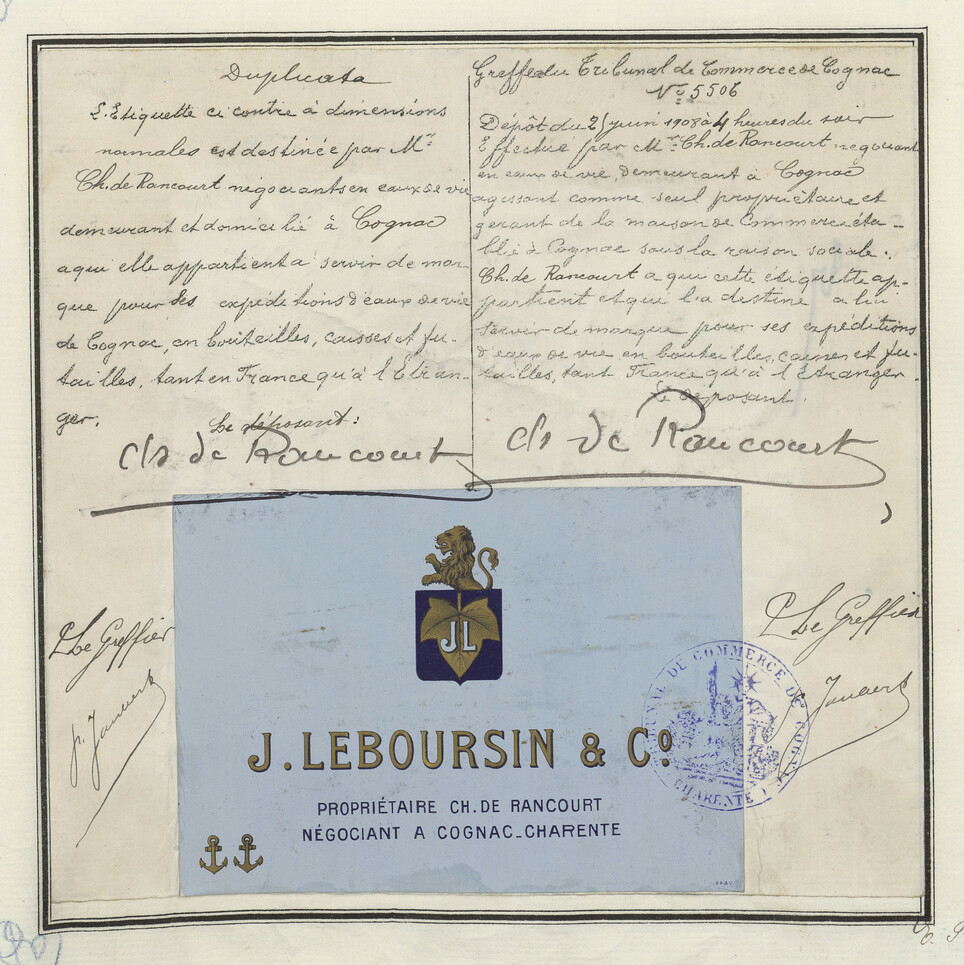 Duplicata
L'Etiquette ci contre à dimensions
normales est destinée par Mr
Ch. de Rancourt négociants en eaux de vie
demeurant et domicilié à Cognac
a qui elle appartient a servir de mar-
que pour ses expéditions d'eaux de vie
de Cognac, en bouteilles, caisses et fu-
tailles, tant en France qu'à l'Etran-
ger.
Le déposant:
Ch de Rancourt
Greffe du Tribunal de Commerce de Cognac
No 5506
Dépôt du juin 1908 à 4 heures du soir
Effectué par Mr Ch. de Rancourt négociant
en eaux de vie, demeurant à Cognac
agissant comme seul propriétaire et
gérant de la maison de Commerce éta-
blie à Cognac sous la raison sociale.
Ch. de Rancourt a qui cette étiquette ap-
partient et qui l'a destine a lui
servir de marque pour ses expéditions
d'eaux de vie en bouteilles, caisses et fu-
tailles, tant France qu'à l'étranger.
Le deposant.
Ch de Rancourt
Le Greffier
Le Greffier
JL
J. LEBOURSIN & Co.
PROPRIÉTAIRE CH. DE RANCOURT
NÉGOCIANT A COGNAC-CHARENTE
TRIBUNAL DU COMMERCE DE COGNAC
CHARENTE